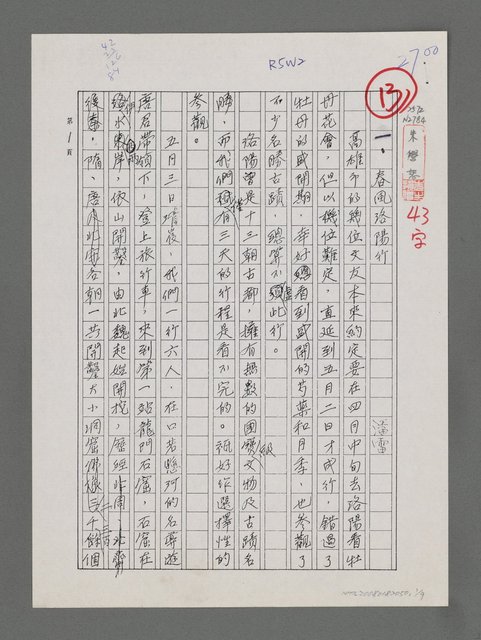 R5W2
27.00
13
No784
43字
一、春風洛陽行
潘雷
高雄市的幾位文友本來約定要在四月中旬去洛陽看牡
丹花會，但以機位難定，直延到五月二日才成行，錯過了
牡丹的盛開期，幸好還看到盛開的芍藥和月季，也參觀了
不少名勝古蹟，總算不虛此行。
洛陽曾是十三朝古都，擁有無數的國寶級文物及古蹟名
勝，而我們僅有三天的行程是看不完的。祇好作選擇性的
參觀。
五月三日清晨，我們一行六人，在口若懸河的名導遊
唐君帶領下，登上旅行車，來到第一站龍門石窟，石窟在
水東岸，依山開鑿，由北魏起始開挖，歷經北周、北齊
後、隋、唐及北宋各朝一共開鑿大小洞窟佛樣二千三百餘個
第1頁